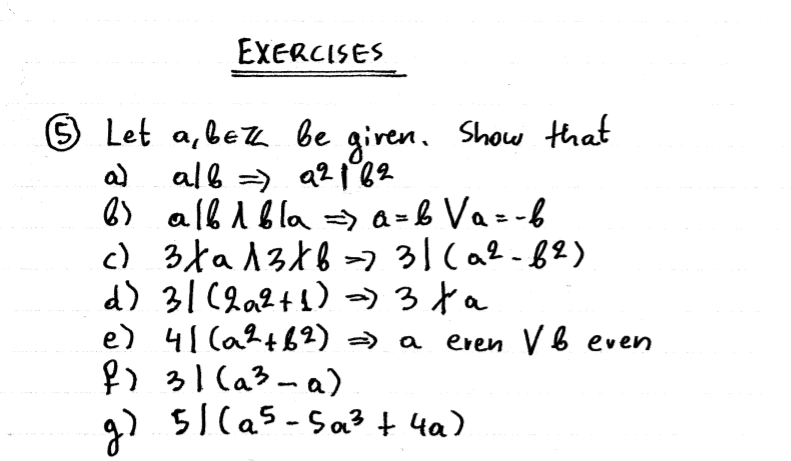 EXERCISES
⑤ Let a,b∈ℤ be given. Show that
a) a|b ⇒ a²|b²
b) a|b ∧ b|a ⇒ a=b ∨ a=-b
c) 3∤a ∧ 3∤b ⇒ 3|(a²-b²)
d) 3|(2a²+1) ⇒ 3∤a
e) 4|(a²+b²) ⇒ a even ∨ b even
f) 3|(a³-a)
g) 5|(a⁵-5a³+4a)